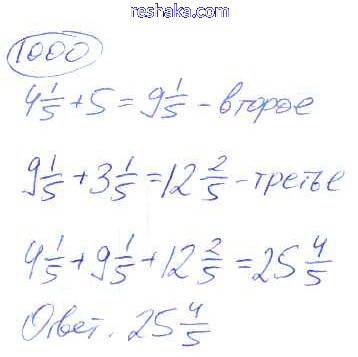 reshaka.com
1000
4 1/5 + 5 = 9 1/5 - второе
9 1/5 + 3 1/5 = 12 2/5 - третье
4 1/5 + 9 1/5 + 12 2/5 = 25 4/5
Ответ. 25 4/5